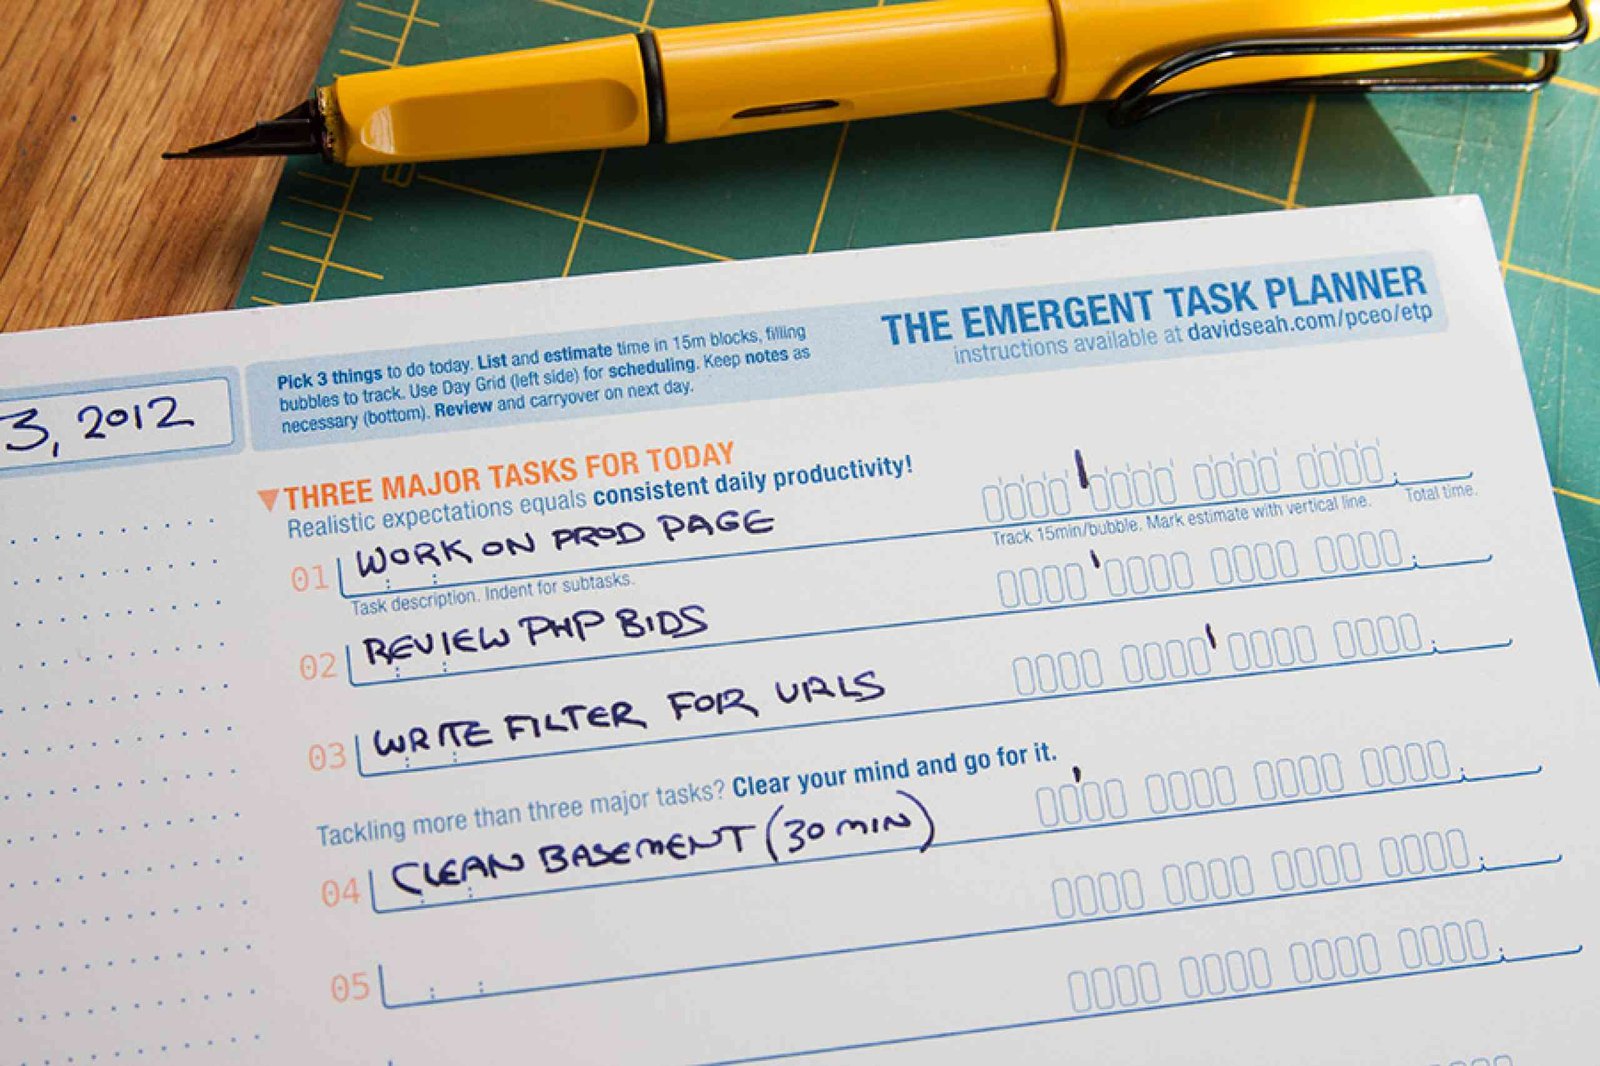 THE EMERGENT TASK PLANNER
instructions available at davidseah.com/pceo/etp
Pick 3 things to do today. List and estimate time in 15m blocks, filling
bubbles to track. Use Day Grid (left side) for scheduling. Keep notes as
necessary (bottom). Review and carryover on next day.
3, 2012
THREE MAJOR TASKS FOR TODAY
Realistic expectations equals consistent daily productivity!
01 WORK ON PROD PAGE
Task description. Indent for subtasks.
Track 15min/bubble. Mark estimate with vertical line. Total time.
02 REVIEW PHP BIDS
03 WRITE FILTER FOR URLS
Tackling more than three major tasks? Clear your mind and go for it.
04 CLEAN BASEMENT (30 MIN)
05